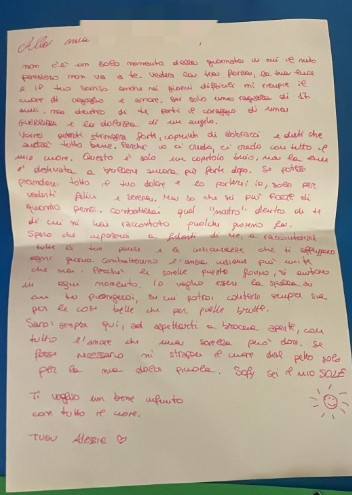 Alla mia
non c'è un solo momento della giornata in cui il mio
pensiero non va a te. Vedere la tua forza, la tua luce
e il tuo sorriso anche nei giorni difficili mi riempie il
cuore di orgoglio e amore. Sei solo una ragazza di 17
anni, ma dentro di te porti il coraggio di una
guerriera e la dolcezza di un angelo.
Vorrei poterti stringere forte, coprirti di abbracci e dirti che
andrà tutto bene. Perché io ci credo, ci credo con tutto il
mio cuore. Questo è solo un capitolo buio, ma la luce
è destinata a brillare ancora più forte dopo. Se potessi
prendermi tutto il tuo dolore e lo porterei io, solo per
vederti felice e serena. Ma so che sei più forte di
quanto pensi. Combatterai quel "mostro" dentro di te
di cui mi hai raccontato qualche giorno fa.
Spero che imparerai a fidarti di me e raccontarmi
tutte le tue paure e le insicurezze che ti affliggono
ogni giorno. Combatteremo l'ansia insieme più unite
che mai. Perché le sorelle questo fanno, si aiutano
in ogni momento. Io voglio essere la spalla su
cui tu piangerai, su cui potrai contare sempre sia
per le cose belle che per quelle brutte.
Sarò sempre qui, ad aspettarti a braccia aperte, con
tutto l'amore che una sorella può dare. Se
fosse necessario mi strappo il cuore dal petto solo
per la mia dolce piccola. Sofy sei il mio SOLE
Ti voglio un bene infinito
con tutto il cuore.
Tua Alessia ♡